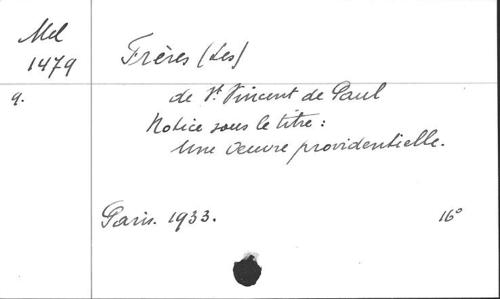 Mel
1479
9.
Frères (Les)
de St Vincent de Paul
Notice sous le titre :
Une Oeuvre providentielle.
Paris. 1933.
16°